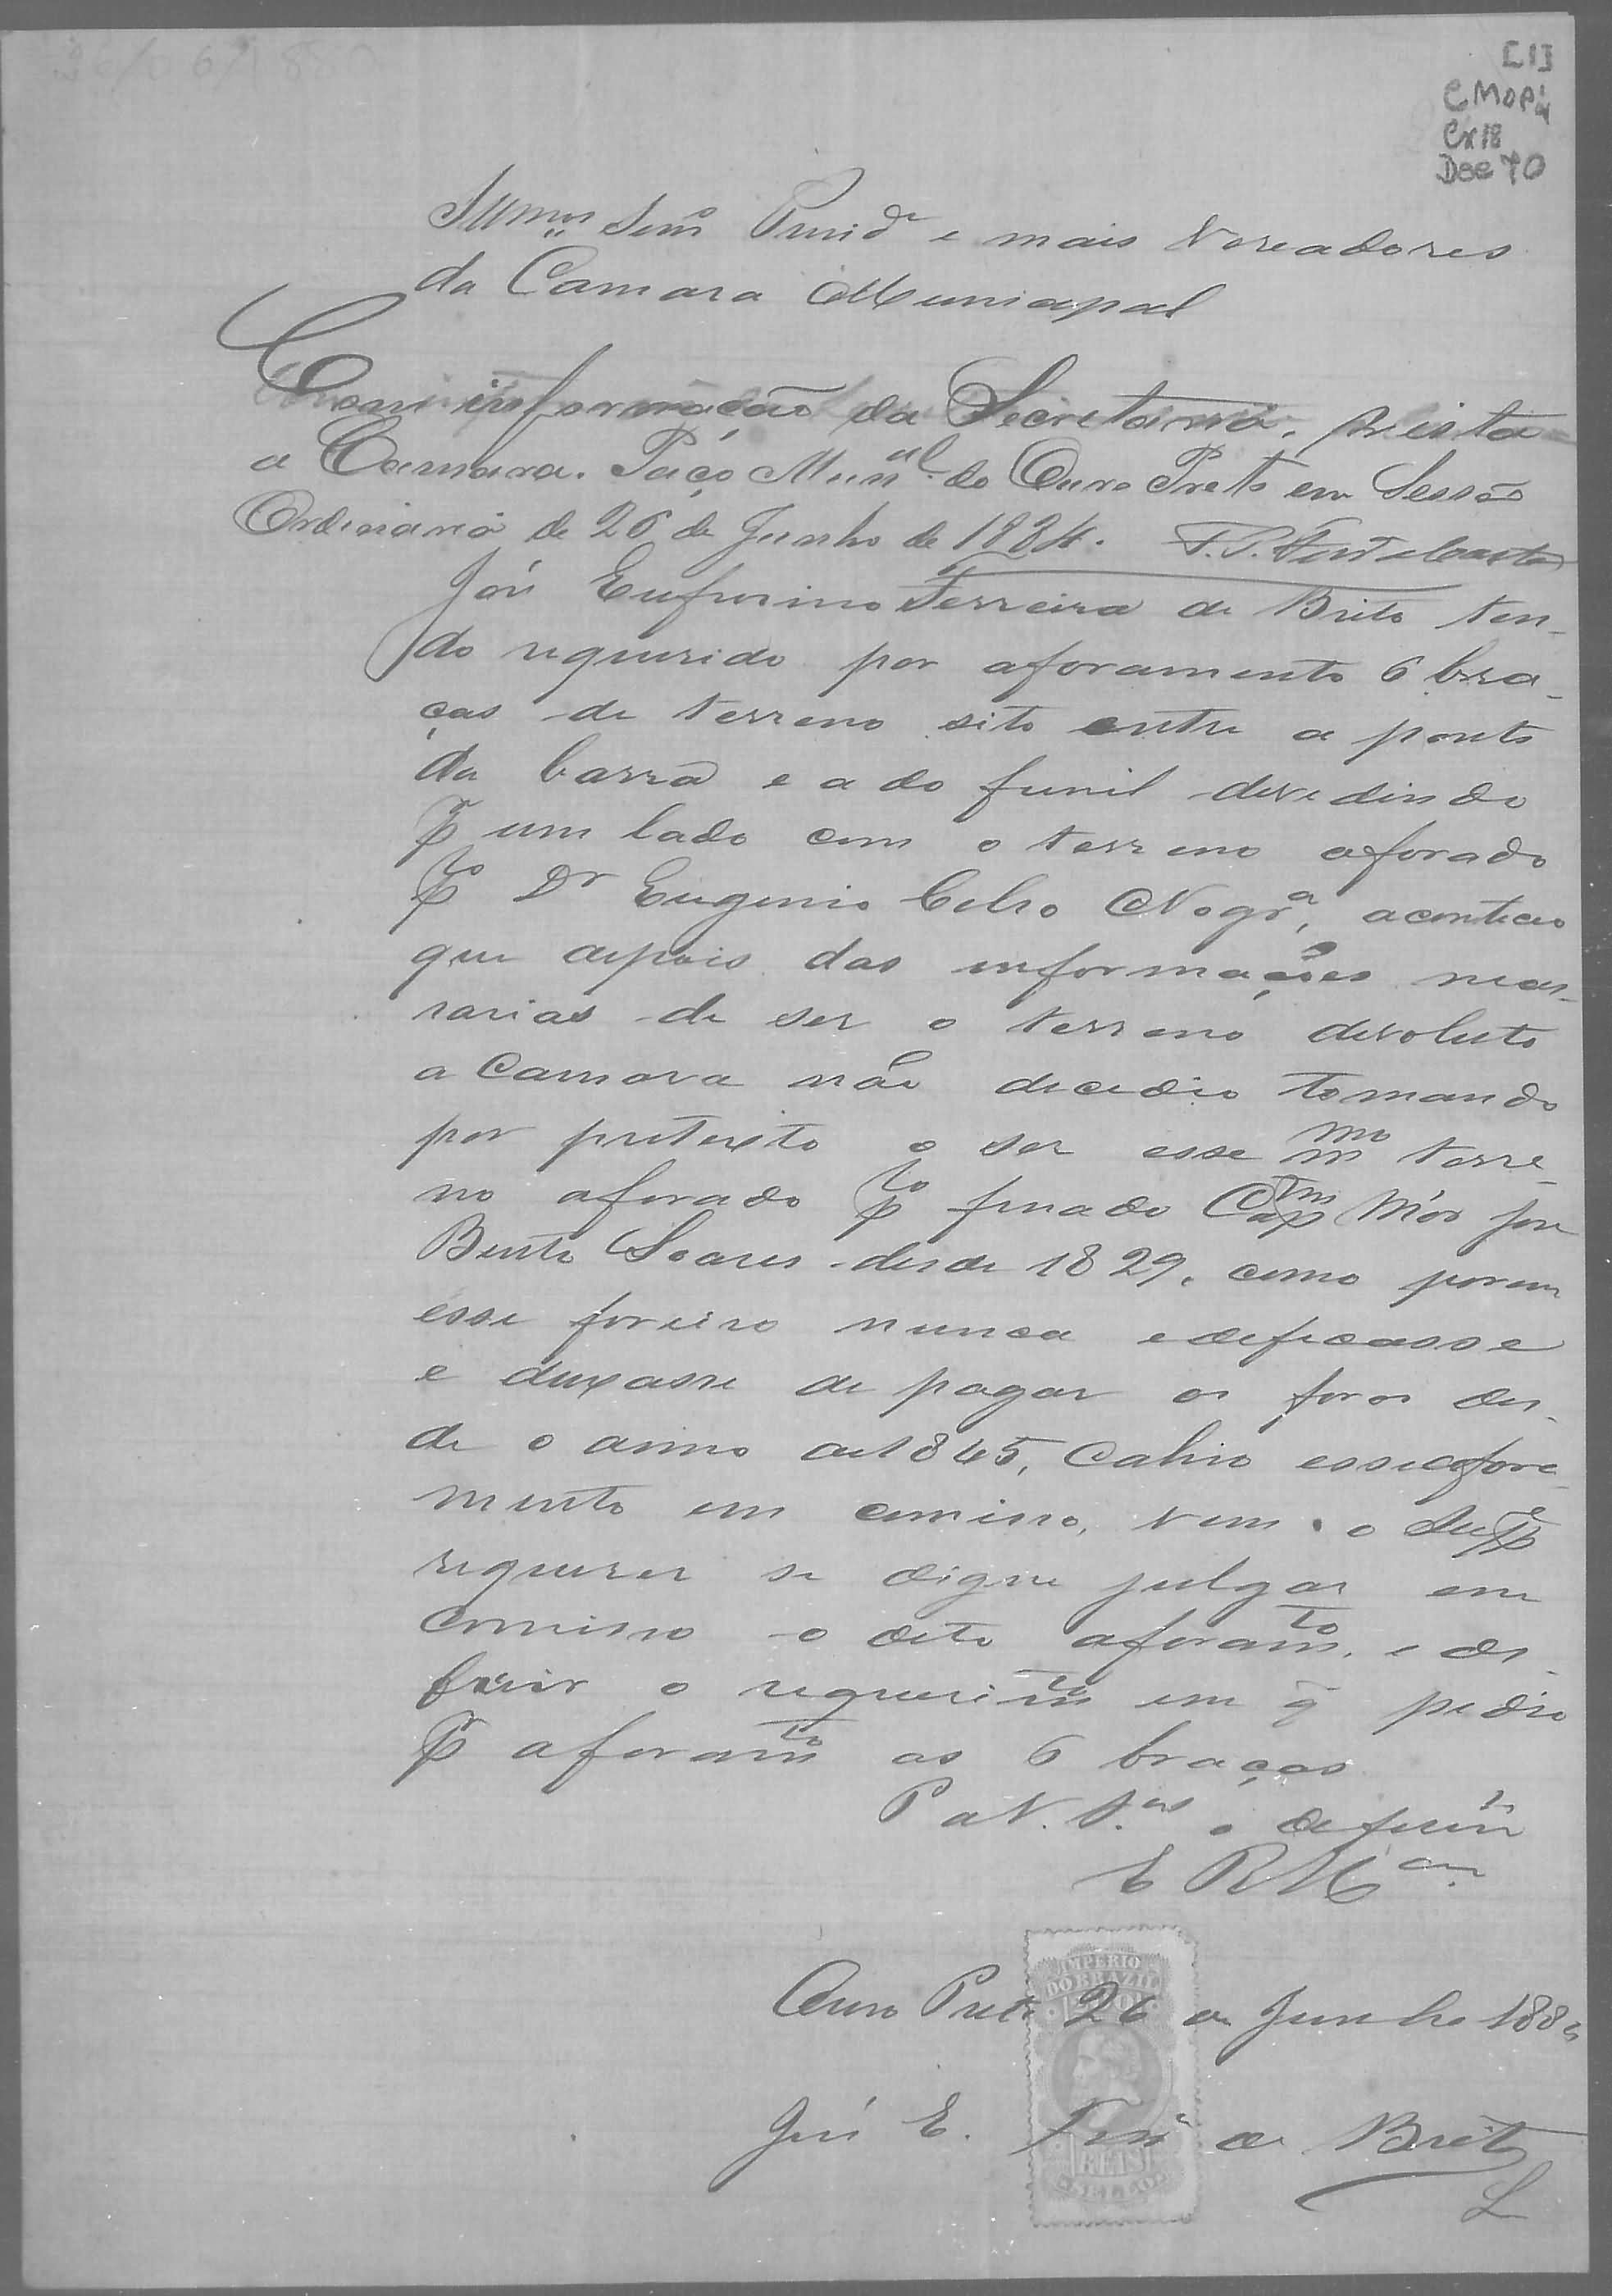 26/06/188
[1]
CMOP
Cx 18
Doc 70
Illmos Senrs Presidte e mais Vereadores
da Camara Municipal
Com informação da Secretaria, volta
a Camara. Paço Munal do Ouro Preto em Sessão
Ordinaria de 26 de Junho de 1884.
José Eufrosino Ferreira de Brito ten-
do requerido por aforamento 6 bra-
ças de terreno sito entre a ponte
da barra e a do funil devedindo
pr um lado com o terreno aforado
plo Dr Eugenio Celso Nogra, aconteceo
que depois das informações neces-
sarias de ser o terreno devoluto
a Camara não decedio tomando
por pretexto o ser esse mmo terre-
no aforado plo finado Capm Mór José
Bento Soares desde 1829, como porem
esse foreiro nunca edeficasse
e deixasse de pagar os foros des-
de o anno de 1845, Cahio esse afora-
mento em comisso, vem o Suppe
requerer se digne julgar em
comisso o dito aforamto, e de-
ferir o requerimto em q pedio
pr aforamto as 6 braças
P a V. Sas o deferimto
E R Mce
IMPERIO
DO BRAZIL
200
Ouro Preto 26 de Junho 188
José E. Ferra de Brito
REIS
SELLO